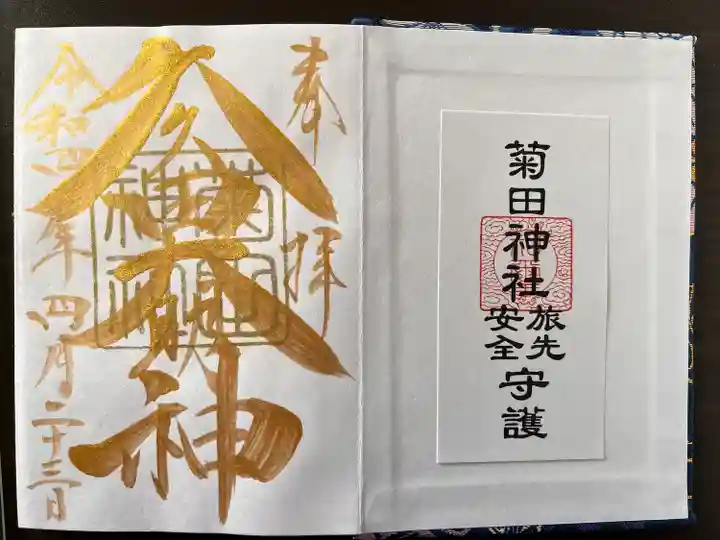 奉拝
久々田大明神
菊田神社
令和四年四月二十三日
菊田神社
旅先
安全
守護